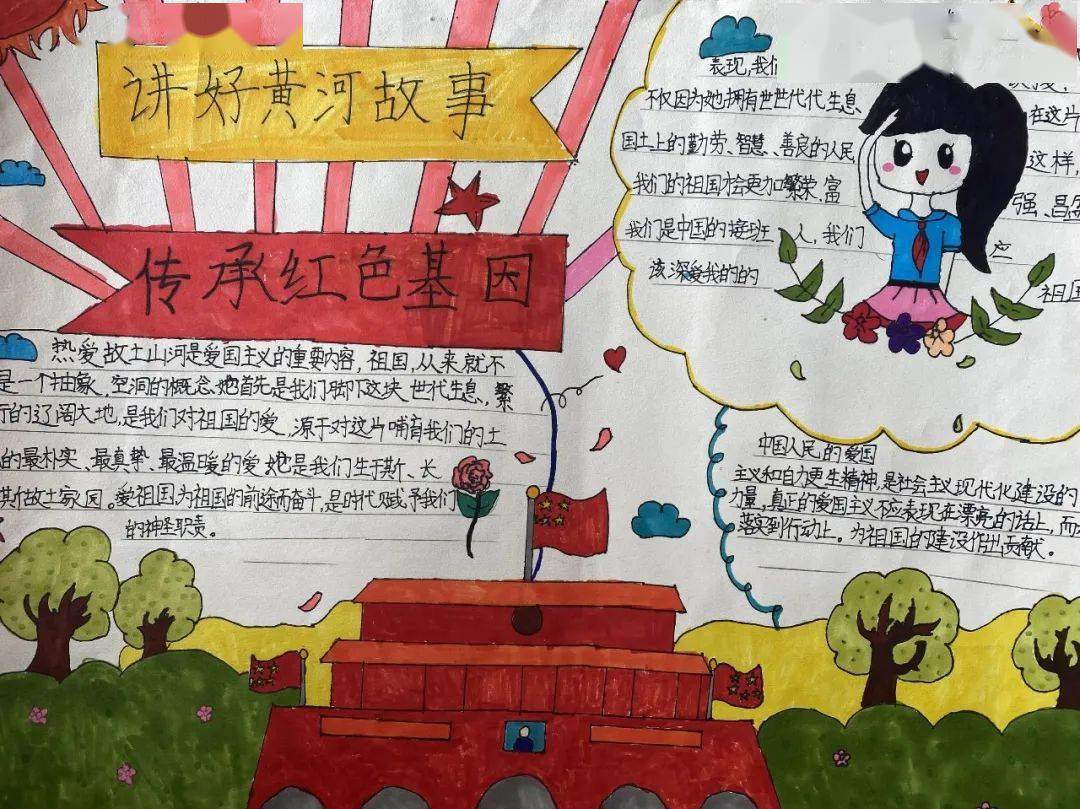 讲好黄河故事
传承红色基因
热爱故土山河是爱国主义的重要内容，祖国，从来就不
是一个抽象、空洞的概念她首先是我们脚下这块世代生息，繁
的辽阔大地，是我们对祖国的爱，源于对这片哺育我们的土
的最朴实、最真挚、最温暖的爱她是我们生于斯、长
其斯故土家园。爱祖国，为祖国的前途而奋斗，是时代赋予我们
的神圣职责。
表现，我们
不仅因为她拥有世世代代生息 在这片
国土上的勤劳、智慧、善良的人民 这样，
我们的祖国才会更加繁荣、富 强、昌盛
我们是中国的接班人，我们 应
该深爱我的的 祖国
中国人民的爱国
主义和自力更生精神，是社会主义现代化建设的
力量，真正的爱国主义不应表现在漂亮的话上，而
落实到行动上。为祖国的建设作出贡献。